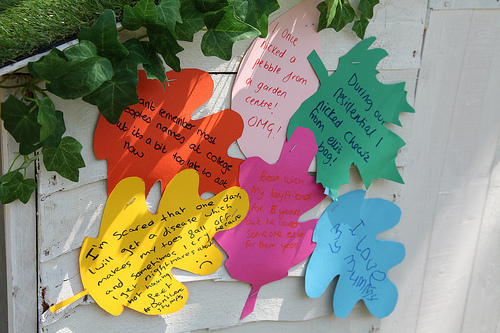 Once
nicked a
pebble from
a garden
centre!
OMG!
During our
residential I
nicked
from
bag!
can't remember most
peoples names at college
but it's a bit too late to ask
now
Been with
My boyfriend
for 8 years
but he loved
someone else
for them years
I'm scared that one day
I will get a disease which
makes my toes fall off
and sometimes I cry because
I get nightmares about
not having
feet
stumps
I LOVE
MY MUMMY